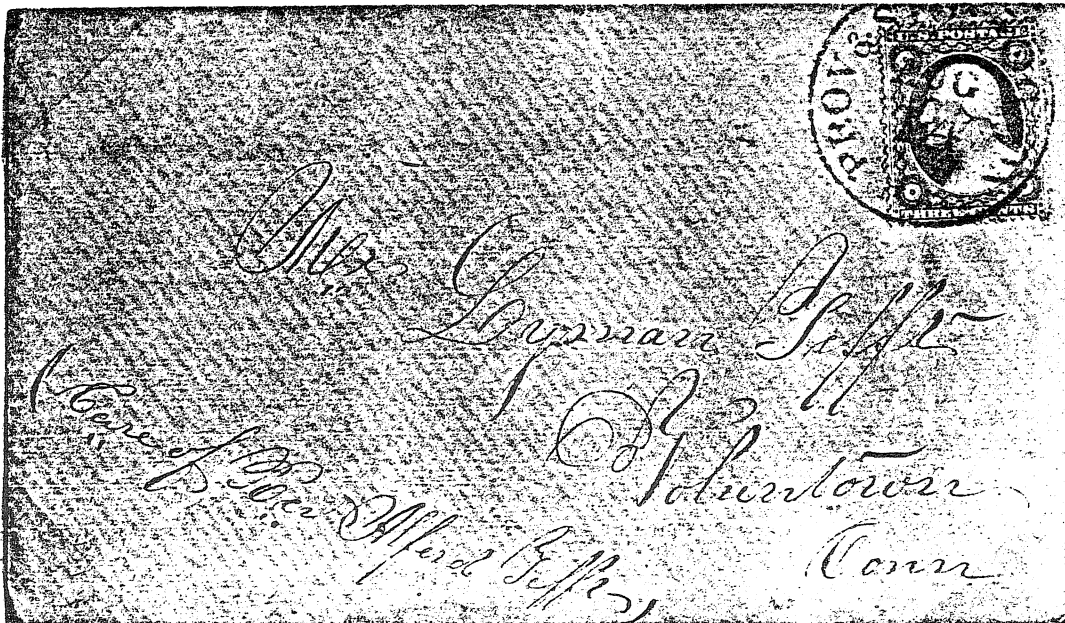 PROV
U.S. POSTAGE
THREE CENTS
Mr Lyman Tefft
Voluntown
Conn
Care of Alfred Tefft